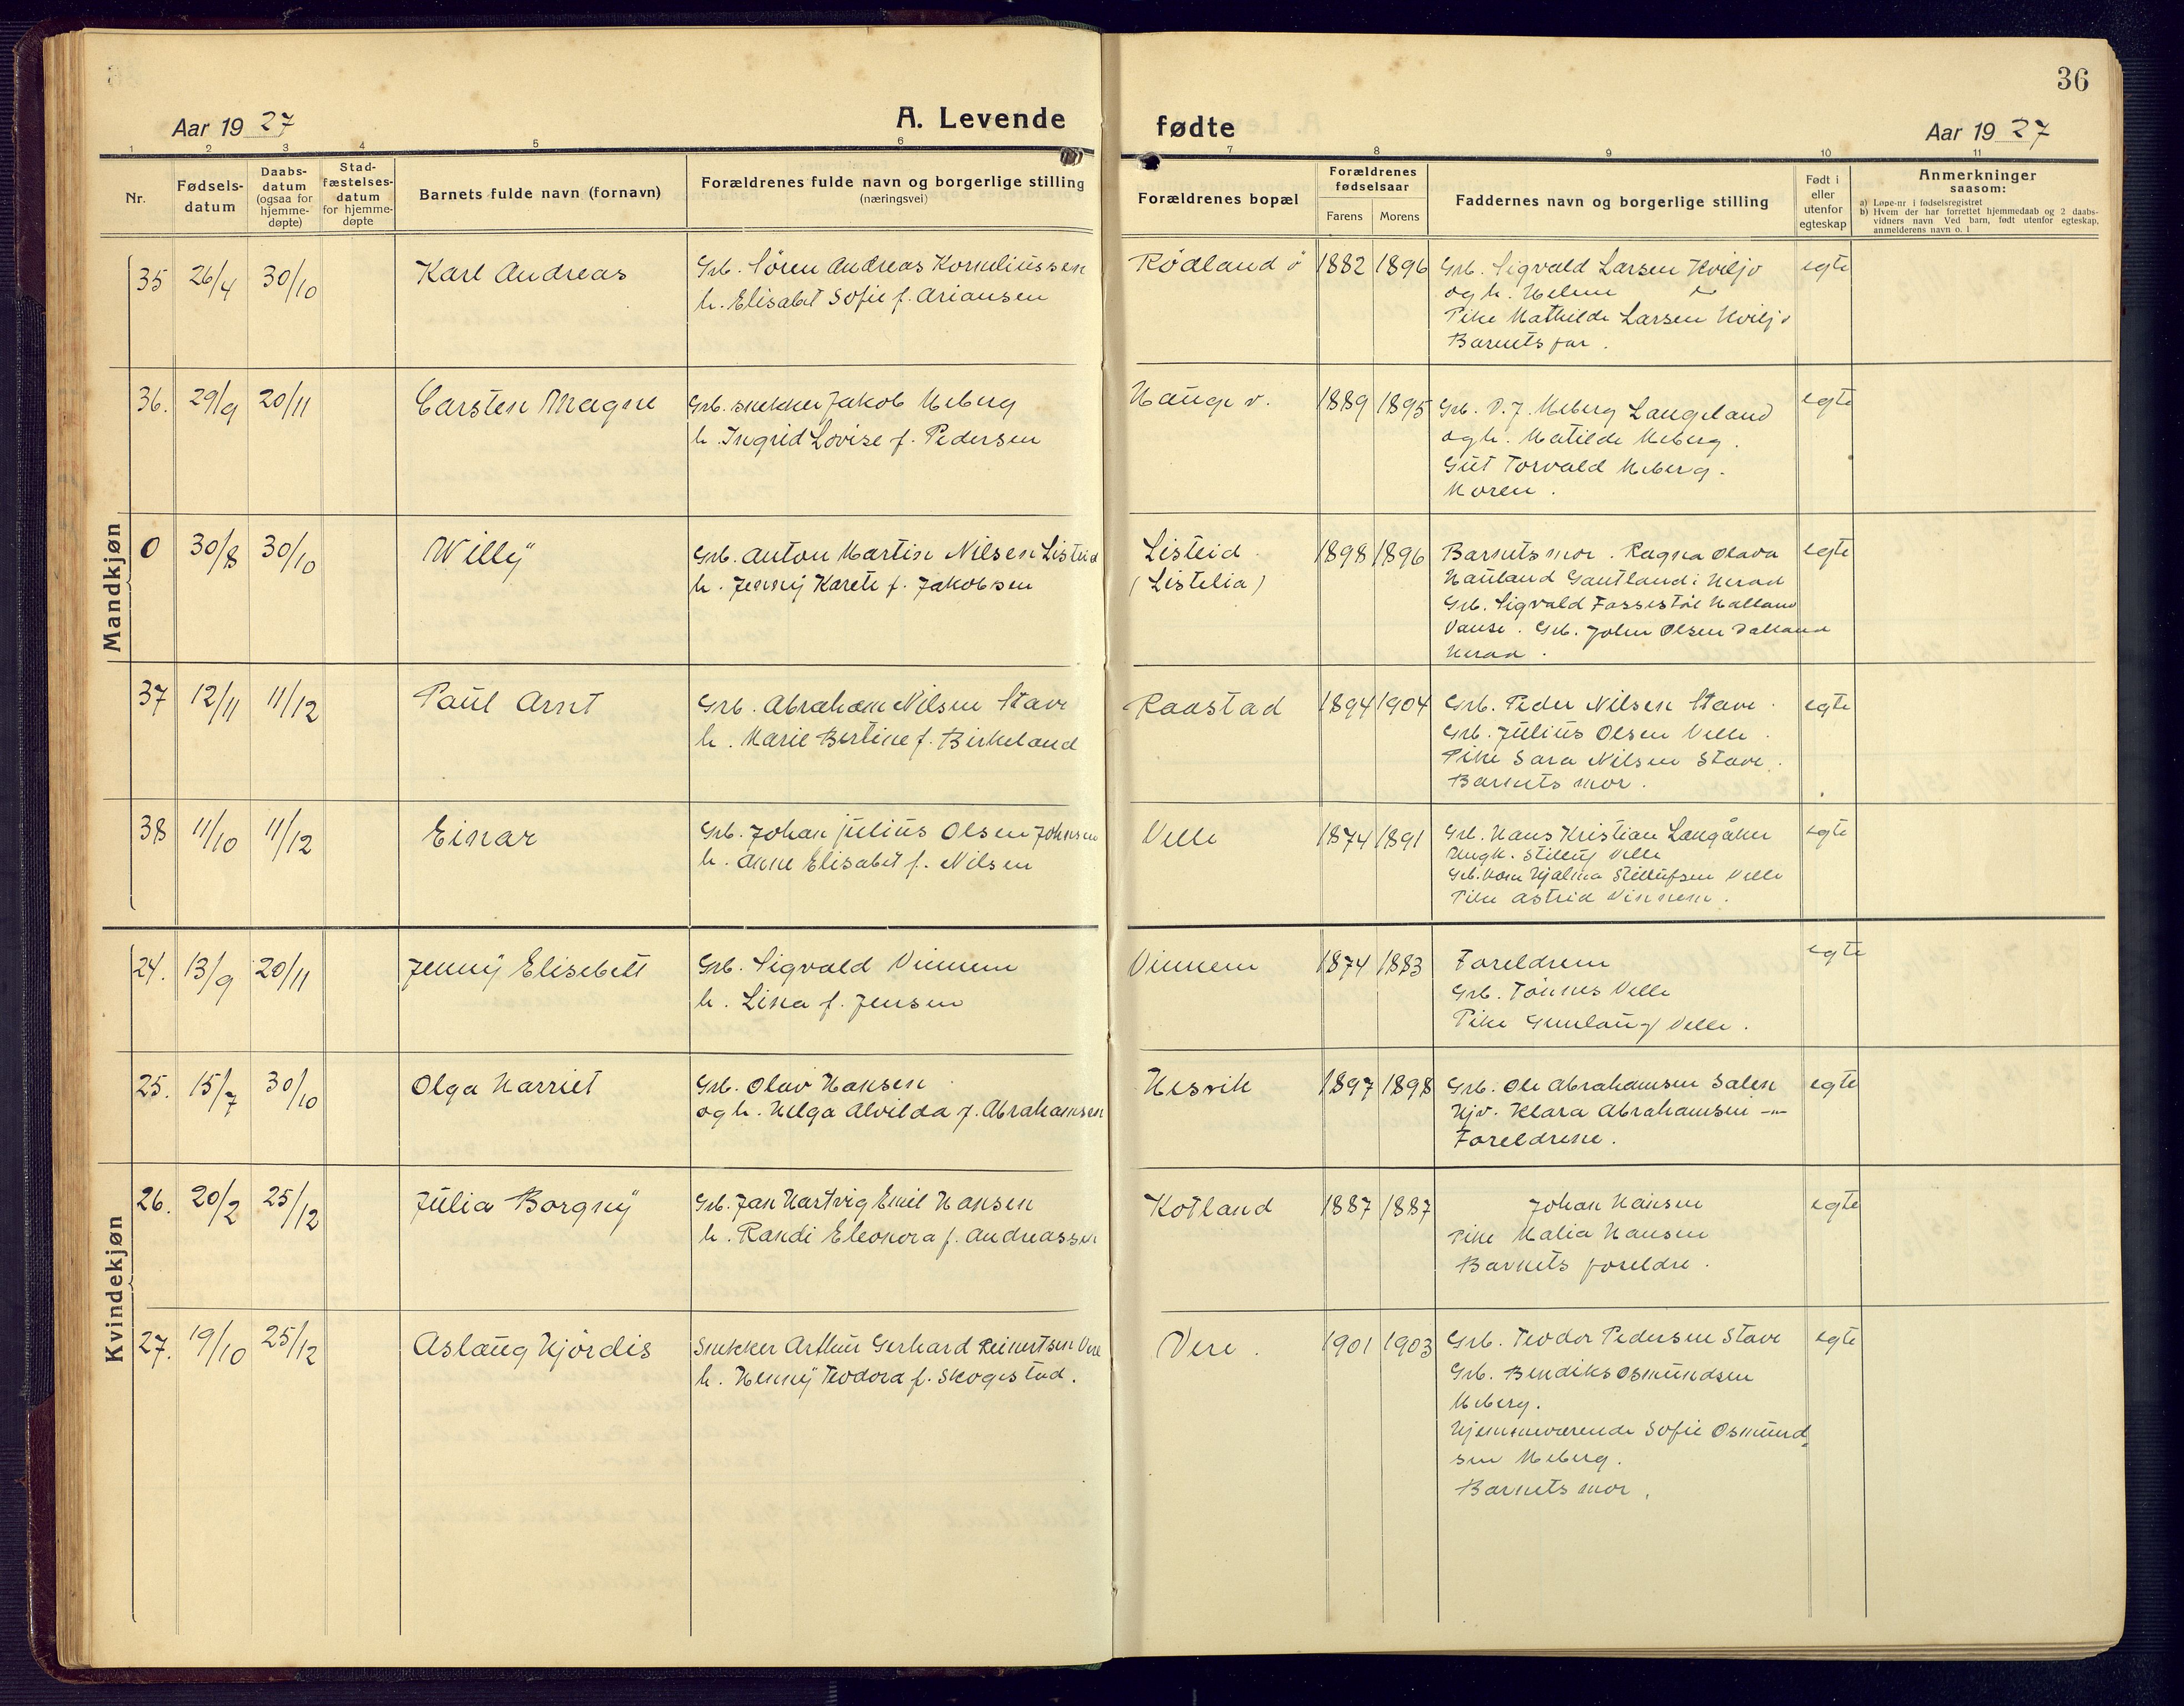 36
Aar 1927
A. Levende
fødte
Aar 1927
1 2 3 4 5 6 7 8 9 10 11
Nr.
Fødsels-
datum
Daabs-
datum
(ogsaa for
hjemme-
døpte)
Stad-
fæstelses-
datum
for hjemme-
døpte
Barnets fulde navn (fornavn)
Forældrenes fulde navn og borgerlige stilling
(næringsvei)
Forældrenes bopæl
Forældrenes
fødselsaar
Farens Morens
Faddernes navn og borgerlige stilling
Født i
eller
utenfor
egteskap
Anmerkninger
saasom:
a) Løpe-nr i fødselsregistret
b) Hvem der har forrettet hjemmedaab og 2 daabs-
vidners navn Ved barn, født utenfor egteskap,
anmelderens navn o. l
Mandkjøn
35 26/4 30/10 Karl Andreas
Grb. Søren Andreas Korneliussen
h. Elisabet Sofie f. Ariansen
Rødland ø 1882 1896
Grb. Sigvald Larsen Kviljo
og h. Helene
Pike Mathilde Larsen Kviljo
Barnets far.
egte
36. 29/9 20/11 Carsten Magne
Grb. snekker Jakob Meberg
h. Ingrid Lovise f. Pedersen
Hauge v. 1889 1895
Grb. D. J. Meberg Langeland
og h. Matilde Meberg.
Gut Torvald Meberg.
Moren.
egte
0 30/8 30/10 Willy
Grb. Anton Martin Nilsen Listeid
h. Jenny Karete f. Jakobsen
Listeid.
(Listelia)
1898 1896
Barnets mor. Ragna Olava
Hauland Gautland i Herad
Grb. Sigvald Fossestøl Halland
Vanse. Grb. John Olsen Dalland
Herad.
egte
37 12/11 11/12 Paul Arnt
Grb. Abraham Nilsen Stave
h. Marie Bertine f. Birkeland
Raastad 1894 1904
Grb. Peder Nilsen Stave.
Grb. Julius Olsen Velle.
Pike Sara Nilsen Stave.
Barnets mor.
egte
38 11/10 11/12 Einar
Grb. Johan Julius Olsen Johnsen
h. Anne Elisabet f. Nilsen
Velle 1874 1891
Grb. Hans Kristian Langåker
Ungk. Stilluf Velle
Grb. kone Hjalma Stillufsen Velle
Pike Astrid Vinnem.
egte
Kvindekjøn
24. 13/9 20/11 Jenny Elisebett
Grb. Sigvald Vinnem
h. Lina f. Jensen
Vinnem 1874 1883
Foreldrem
Grb. Tønnes Velle
Pike Gunlaug Velle.
egte
25. 15/7 30/10 Olga Harriet
Grb. Olav Hansen
og h. Helga Alvilda f. Abrahamsen
Hesvik 1897 1898
Grb. Ole Abrahamsen Salen
Hjv. Klara Abrahamsen -"-
Foreldrene.
egte
26. 20/2 25/12 Julia Borgny
Grb. Jan Hartvig Emil Hansen
h. Randi Eleonora f. Andreassen
Kotland 1887 1887
Johan Hansen
Pike Malia Hansen
Barnets foreldre.
egte
27. 19/10 25/12 Aslaug Hjørdis
Snekker Arthur Gerhard Reinertsen Vere
h. Henny Teodora f. Skogestad.
Vere. 1901 1903
Grb. Teodor Pedersen Stave
Grb. Bendiks Osmundsen
Meberg.
Hjemmeværende Sofie Osmund-
sen Meberg.
Barnets mor.
egte